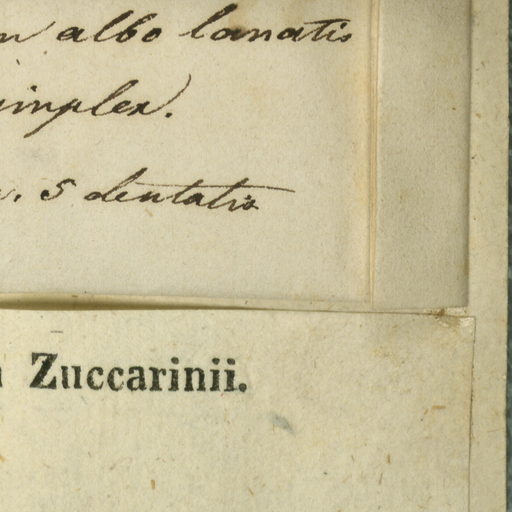 albo lanatis
simplex.
5 dentatis
Zuccarinii.